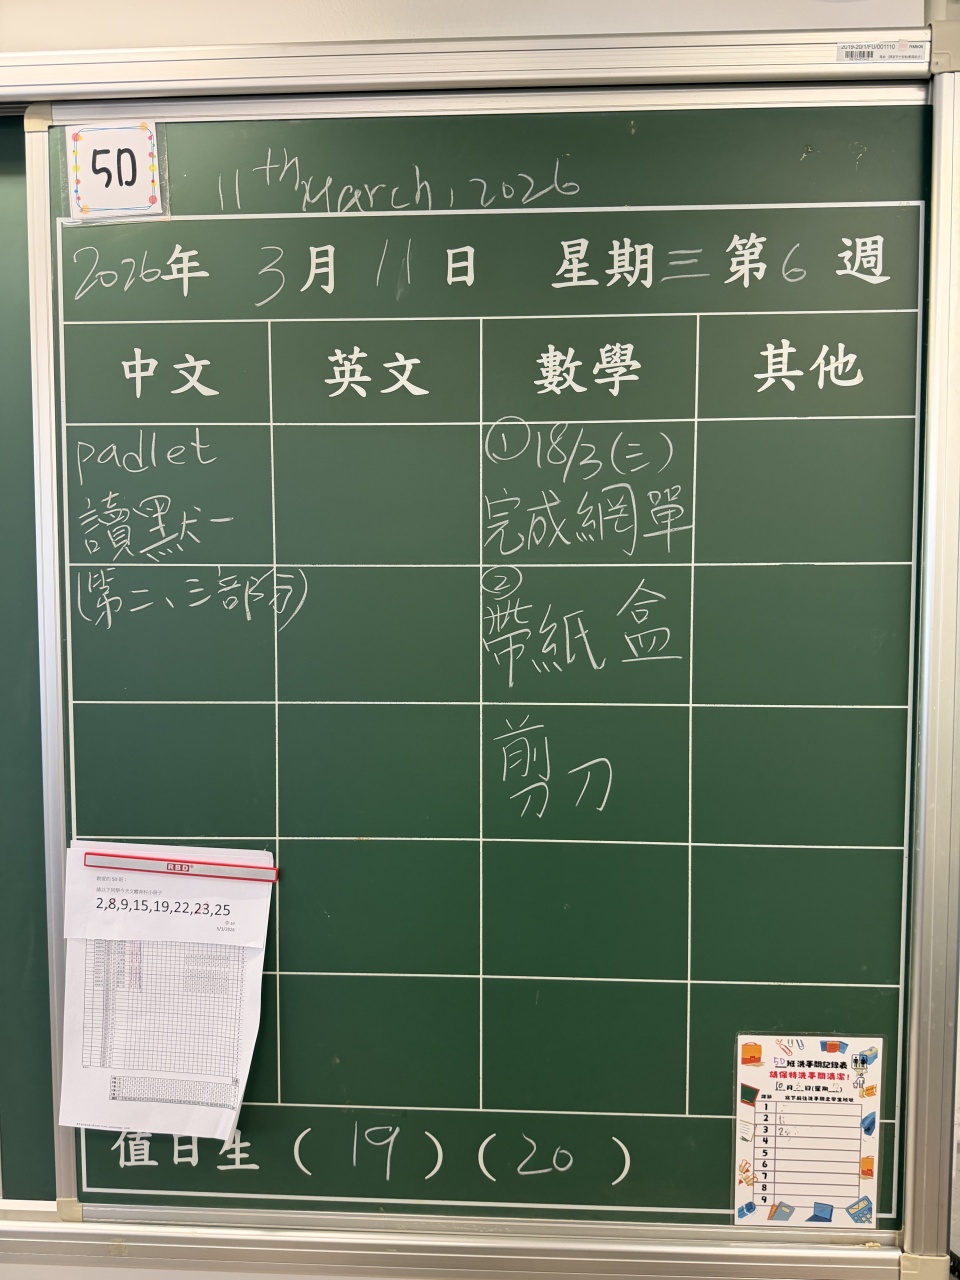 2019-20/1/FU/001110
5D
11th March, 2026
2026年 3月 11日 星期三 第6週
中文 英文 數學 其他
padlet
讀默一
(第二、三部份)
① 18/3 (三)
完成網單
②
帶紙盒
剪刀
RBD
2,8,9,15,19,22,23,25
5D班洗手間記錄表
請保持洗手間清潔！
1
2
3
4
5
6
7
8
9
值日生 ( 19 ) ( 20 )